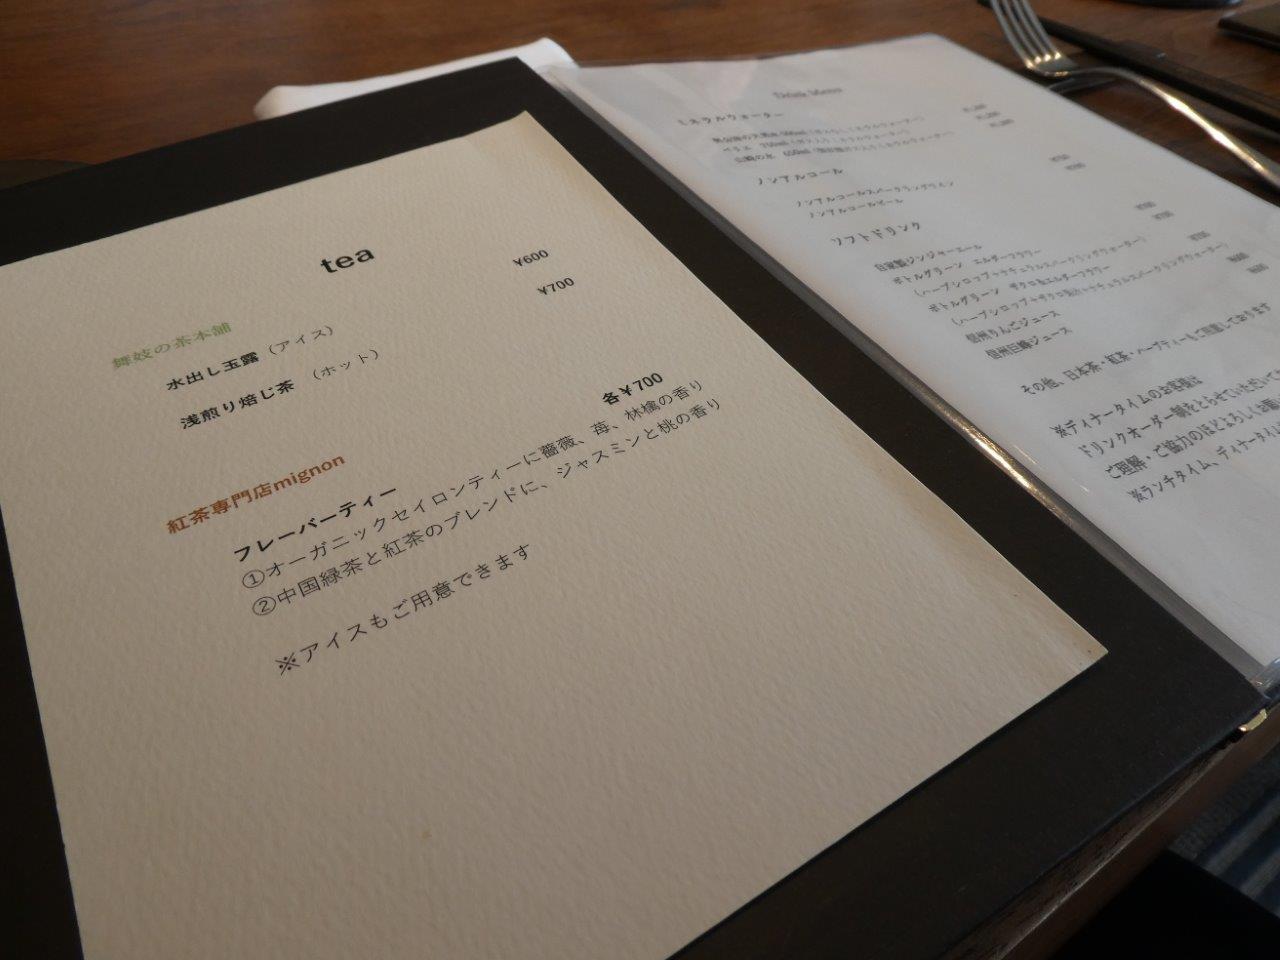 tea
舞妓の茶本舗
水出し玉露（アイス） ¥600
浅煎り焙じ茶 （ホット） ¥700
紅茶専門店mignon
フレーバーティー 各¥700
①オーガニックセイロンティーに薔薇、苺、林檎の香り
②中国緑茶と紅茶のブレンドに、ジャスミンと桃の香り
※アイスもご用意できます
Drink Menu
ミネラルウォーター
ノンアルコール
ノンアルコールスパークリングワイン
ノンアルコールビール
ソフトドリンク
自家製ジンジャーエール
ボトルグリーン エルダーフラワー
（ハーブシロップ+ナチュラルスパークリングウォーター）
ボトルグリーン ザクロ&エルダーフラワー
（ハーブシロップ+ザクロ果汁+ナチュラルスパークリングウォーター）
信州りんごジュース
信州巨峰ジュース
その他、日本茶・紅茶・ハーブティーもご用意しております
※ディナータイムのお客様は
ドリンクオーダー制をとらせていただいて
ご理解・ご協力のほどよろしくお願い
※ランチタイム、ディナータイム